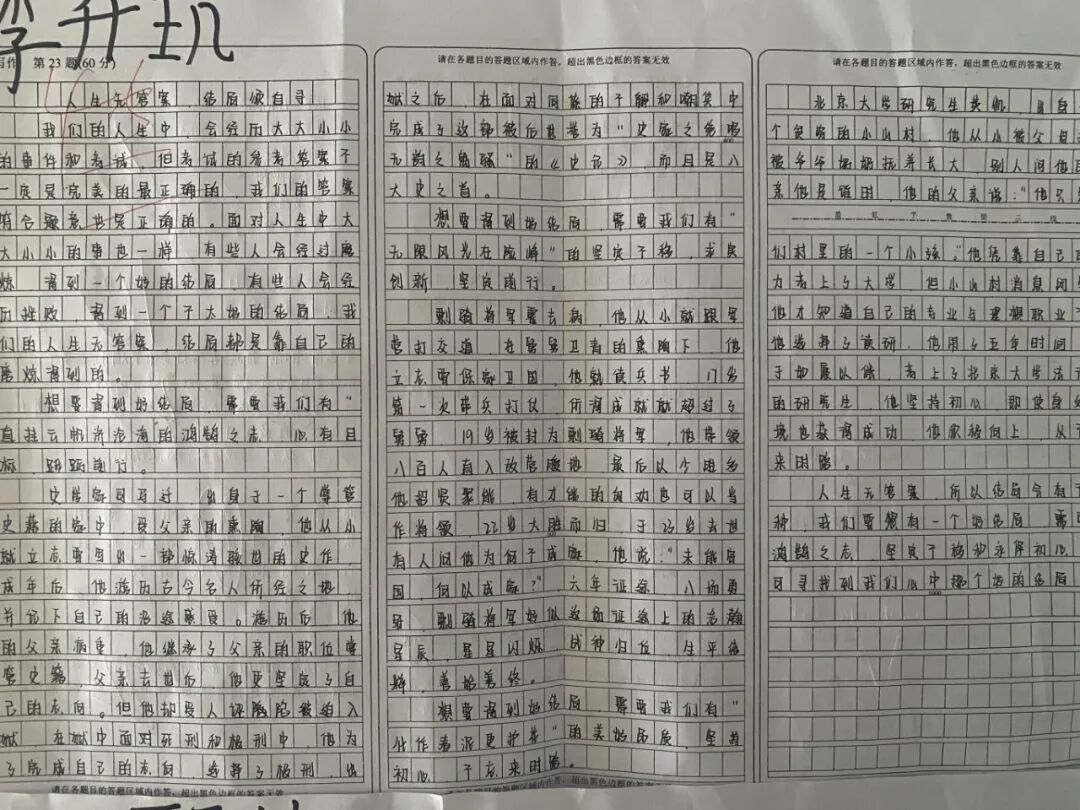 李升玑
写作 第23题(60分)
人生无答案,结局须自寻
我们的人生中,会经历大大小小
的事件和考试,但考试的参考答案不
一定是完美的最正确的,我们的答案
符合题意也是正确的。面对人生中大
大小小的事也一样,有些人会经过磨
炼,得到一个好的结局,有些人会经
历挫败,得到一个不太好的结局,我
们的人生无答案,结局都是靠自己的
磨炼得到的。
想要得到好结局,需要我们有“
直挂云帆济沧海的鸿鹄之志,心有目
标,踔踔前行。
史学家司马迁,出身于一个掌管
史籍的家中,受父亲的熏陶,他从小
就立志要写出一部惊涛骇世的史作,
成年后,他游历古今名人所经之地,
并记下自己的游览感受。游历后,他
的父亲病重,他继承了父亲的职位掌
管史籍,父亲去世后,他更坚定了自
己的志向。但他却受人诬陷陷被迫入
狱,在狱中面对死刑和极刑中,他为
了完成自己的志向,选择了极刑,出
请在各题目的答题区域内作答,超出黑色边框的答案无效
请在各题目的答题区域内作答,超出黑色边框的答案无效
狱之后,在面对同族的不解和嘲笑中
完成了这部被后世誉为“史家之绝唱
无韵之离骚”的《史记》,而且是八
大史之首。
想要得到好结局,需要我们有“
无限风光在险峰”的坚定不移,求民
创新,坚定前行。
剽骑将军霍去病,他从小就跟军
营打交道,在舅舅卫青的熏陶下,他
立志要保家卫国,他勉读兵书,17岁
第一次带兵打仗,所得成就就超过了
舅舅,19岁被封为剽骑将军,他带领
八百人直入敌营腹地,最后以少胜多
他招贤聚能,有才能的匈奴也可以当
作将领,22岁大胜而归,于23岁去世
有人问他为何不成家,他说:“未能安
国,何以成家?”六年征途,八场勇
异,剽骑将军好似这场征途上的浩瀚
星辰,星星闪烁,战神归位,生平结
辉,善始善终。
想要得到好结局,需要我们有“
化作春泥更护花”的美好品质,坚持
初心,不忘来时路。
请在各题目的答题区域内作答,超出黑色边框的答案无效
请在各题目的答题区域内作答,超出黑色边框的答案无效
北京大学研究生 出身
个贫穷的小山村,他从小被父母
被爷爷奶奶抚养长大,别人问他
亲他是谁时,他的父亲说:“他只是
们村里的一个小孩。”他凭靠自己
力考上了大学,但小山村消息闭
他才知道自己的专业与理想职业
他选择了读研,他用了五年时间
于如愿以偿,考上了北京大学法
的研究生,他坚持初心,即使身
境也获得成功,他积极向上,从
来时路。
人生无答案,所以结局会有
种,我们要想有一个好结局,需
鸿鹄之志,坚定不移和永葆初心
可寻找到我们心中那个好的结局